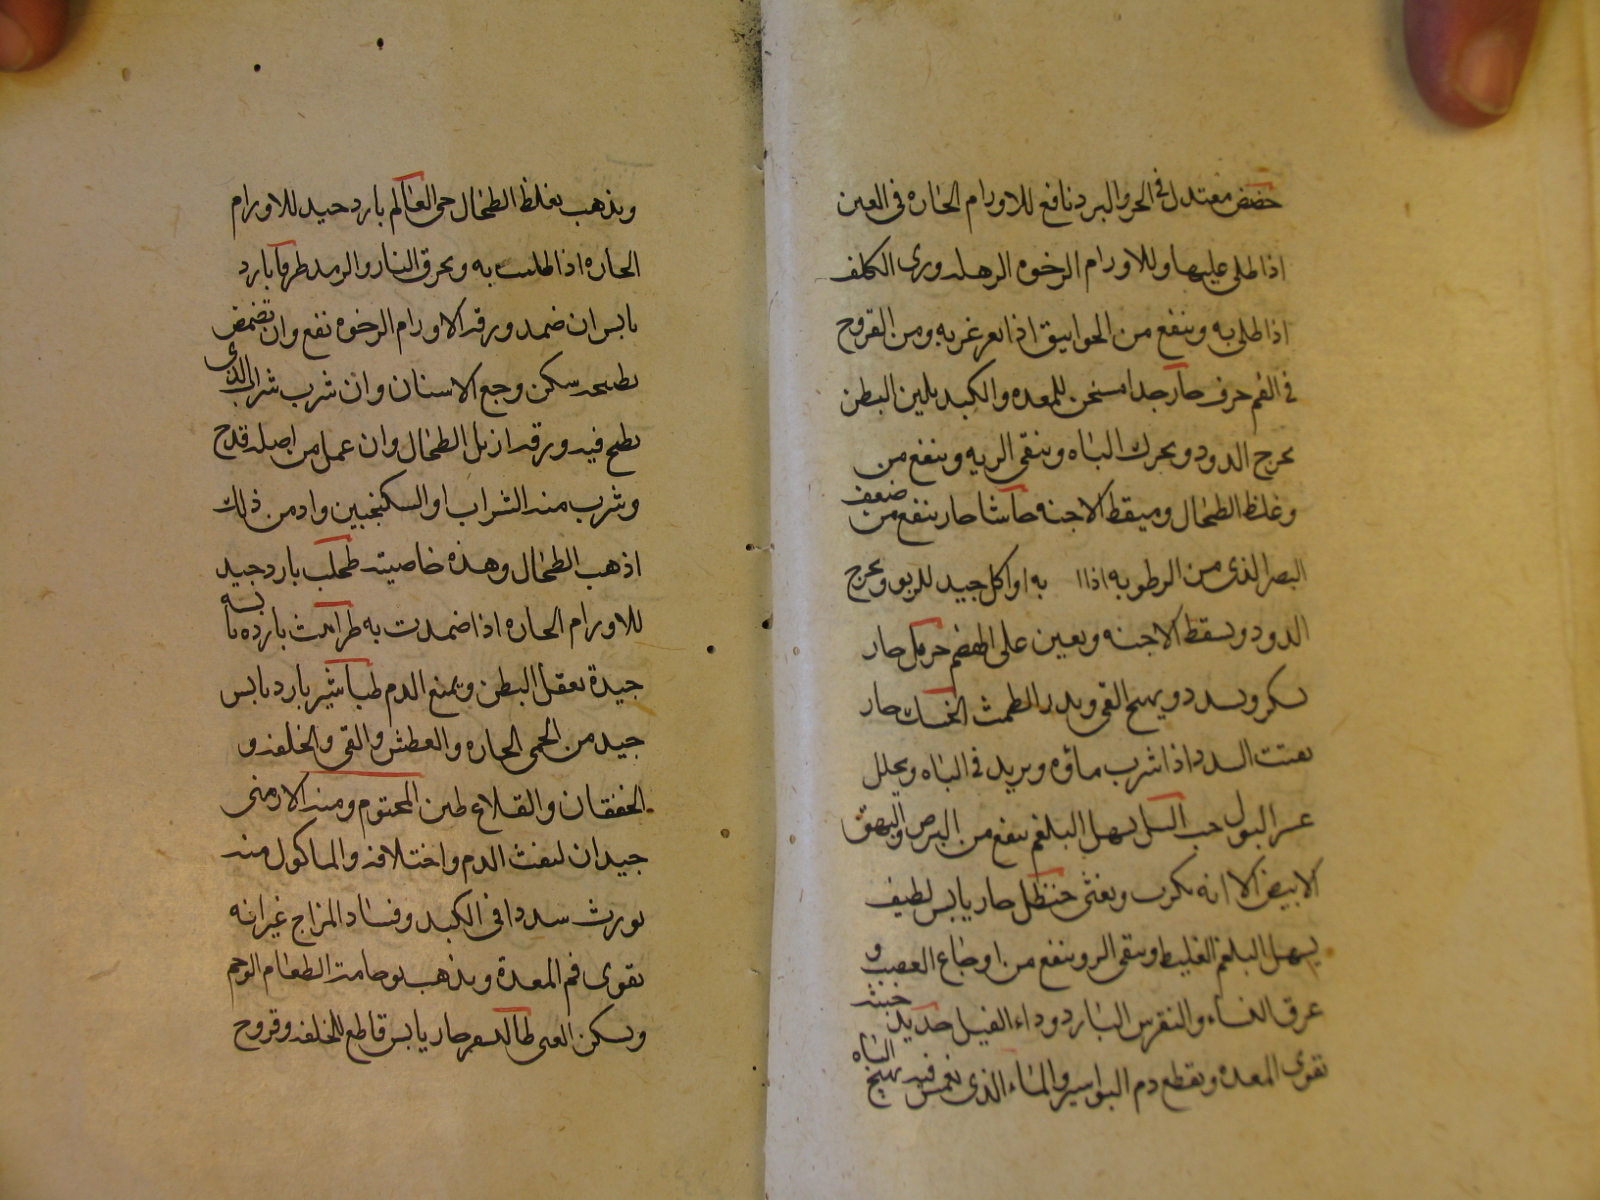 حضض معتدل في الحر والبرد نافع للاورام الحاره في العين
اذا طلى عليها وللاورام الرخوه الرهله ويرى الكلف
اذا طلى به وينفع من الخوانيق اذا تغرغر به ومن القروح
في الفم حرف حار جدا مسخن للمعده والكبد يلين البطن
يخرج الدود ويحرك الباه وينقى الريه وينفع من
وغلظ الطحال ويسقط الاجنه حاشا حار ينفع من ضعف
البصر الذى من الرطوبه اذا به او اكل جيد للربو ويخرج
الدود ويسقط الاجنه ويعين على الهضم حرمل حار
يسكر ويسدد ويهيج القى ويدر الطمث الحسك حار
يفتت السدد اذا شرب ماؤه ويزيد في الباه ويحلل
عسر البول حب النيل يسهل البلغم ينفع من البرص والبهق
الابيض الا انه يكرب ويغثى حنظل حار يابس لطيف
يسهل البلغم الغليظ وينقى الر وينفع من اوجاع العصب و
عرق النساء والنقرس البارد وداء الفيل خبث حديد
يقوى المعده ويقطع دم البواسير والماء الذى يغمس فيه يهيج الباه
ويذهب بغلظ الطحال حى العالم بارد جيد للاورام
الحاره اذا طليت به وبحرق النار والرمد طرفا بارد
يابس ان ضمد ورقه الاورام الرخوه نفع وان تمضمض
بطبيخه سكن وجع الاسنان وان شرب شراب الذى
يطبخ فيه ورقه اذبل الطحال وان عمل من اصله قدح
وشرب منه الشراب او السكنجبين وادمن ذلك
اذهب الطحال وهذه خاصيته طحلب بارد جيد
للاورام الحاره اذا ضمدت به طراثيث بارده يابسه
جيدة تعقل البطن وتمنع الدم طباشير بارد يابس
جيد من الحمى الحاره والعطش والقى والخلفه و
الخفقان والقلاع طين المختوم ومنه الارمنى
جيدان لنفث الدم واختلافه والماكول منه
يورث سددا في الكبد وفساد المزاج غير انه
يقوى فم المعدة ويذهب بوخامة الطعام الوخم
ويسكن الغثى طاليسفر حار يابس قاطع للخلفه وقروح